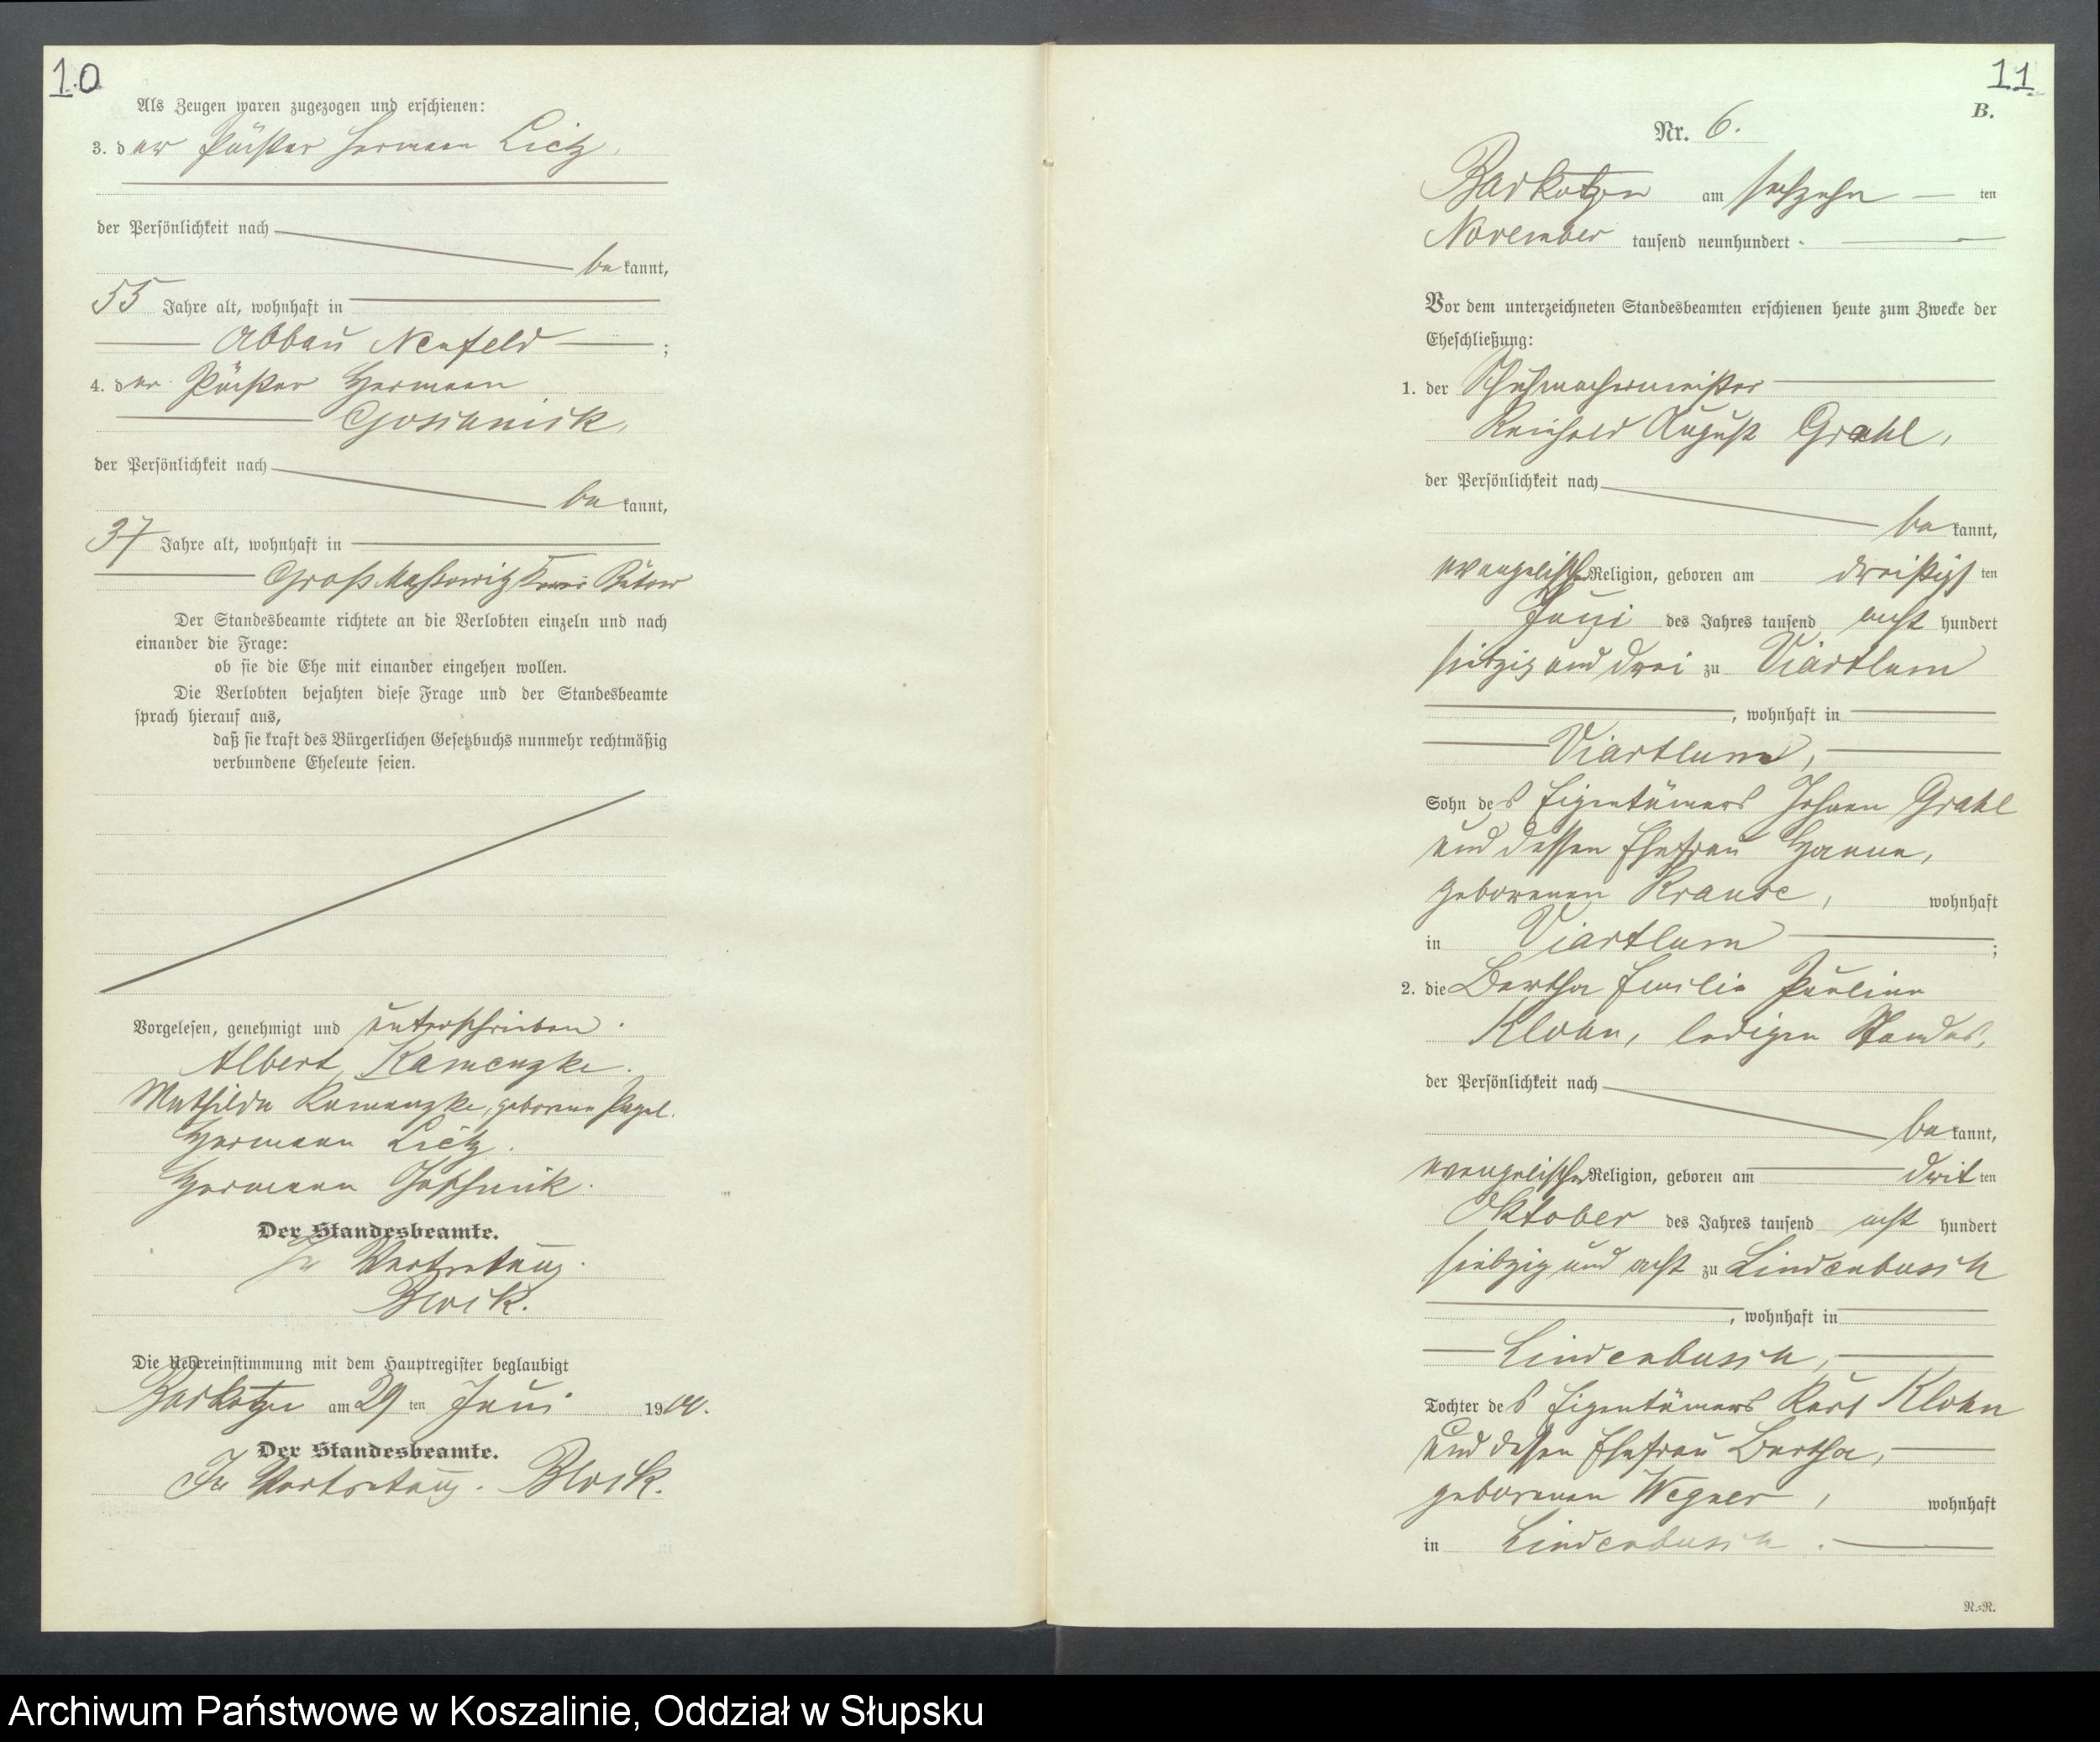 10
Als Zeugen waren zugezogen und erschienen:
3. der Pächter Hermann Lietz,
der Persönlichkeit nach
be kannt,
55 Jahre alt, wohnhaft in
Abbau Neufeld ;
4. der Pächter Hermann
der Persönlichkeit nach
be kannt,
37 Jahre alt, wohnhaft in
Groß Massowitz Kreis Bütow
Der Standesbeamte richtete an die Verlobten einzeln und nach
einander die Frage:
ob sie die Ehe mit einander eingehen wollen.
Die Verlobten bejahten diese Frage und der Standesbeamte
sprach hierauf aus,
daß sie kraft des Bürgerlichen Gesetzbuchs nunmehr rechtmäßig
verbundene Eheleute seien.
Vorgelesen, genehmigt und unterschrieben.
Albert Kamenzke.
Mathilde Kamenzke, geborene Pagel.
Hermann Lietz.
Hermann
Der Standesbeamte.
In Vertretung.
Block.
Die Uebereinstimmung mit dem Hauptregister beglaubigt
Barkotzen am 29 ten Juni 1900.
Der Standesbeamte.
In Vertretung. Block.
11
B.
Nr. 6.
Barkotzen am sechzehn ten
November tausend neunhundert
Vor dem unterzeichneten Standesbeamten erschienen heute zum Zwecke der
Eheschließung:
1. der Schuhmachermeister
Reinhold August Grahl,
der Persönlichkeit nach
be kannt,
evangelischer Religion, geboren am dreißigsten
Juni des Jahres tausend acht hundert
siebzig und drei zu Viartlum
, wohnhaft in
Viartlum,
Sohn des Eigentümers Johann Grahl
und dessen Ehefrau Hanne,
geborenen Krause, wohnhaft
in Viartlum ;
2. die Bertha Emilie Pauline
Klohn, ledigen Standes,
der Persönlichkeit nach
be kannt,
evangelischer Religion, geboren am dritten
Oktober des Jahres tausend acht hundert
siebzig und acht zu Lindenbusch
, wohnhaft in
Lindenbusch,
Tochter des Eigentümers Karl Klohn
und dessen Ehefrau Bertha,
geborenen Wegner, wohnhaft
in Lindenbusch.
R.=R.
Archiwum Państwowe w Koszalinie, Oddział w Słupsku